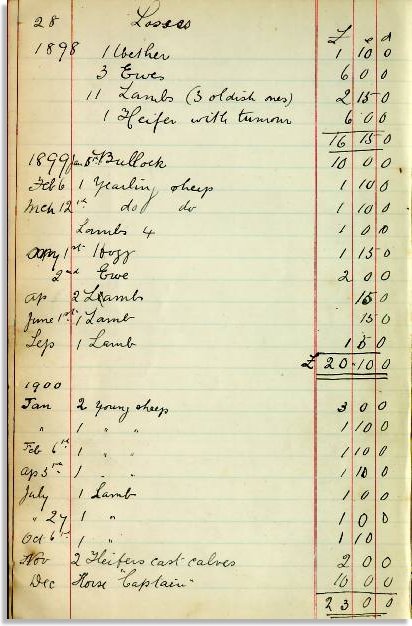 28 Losses
£ s d
1898 1 Wether 1 10 0
3 Ewes 6 0 0
11 Lambs (3 oldish ones) 2 15 0
1 Heifer with tumour 6 0 0
16 15 0
1899 Jan 8th Bullock 10 0 0
Feb 6 1 Yearling sheep 1 10 0
Mch 12th do do 1 10 0
Lambs 4 1 0 0
1st 1 Hogg 1 15 0
2nd Ewe 2 0 0
ap 2 Lambs 15 0
June 1st 1 Lamb 15 0
Sep 1 Lamb 1 5 0
£ 20 10 0
1900
Jan 2 Young sheep 3 0 0
" 1 " " 1 10 0
Feb 6th 1 " " 1 10 0
ap 3rd 1 " " 1 10 0
July 1 Lamb 1 0 0
" 27 1 " 1 0 0
Oct 6th 1 " 1 10
Nov 2 Heifers cast calves 2 0 0
Dec Horse "Captain" 10 0 0
23 0 0